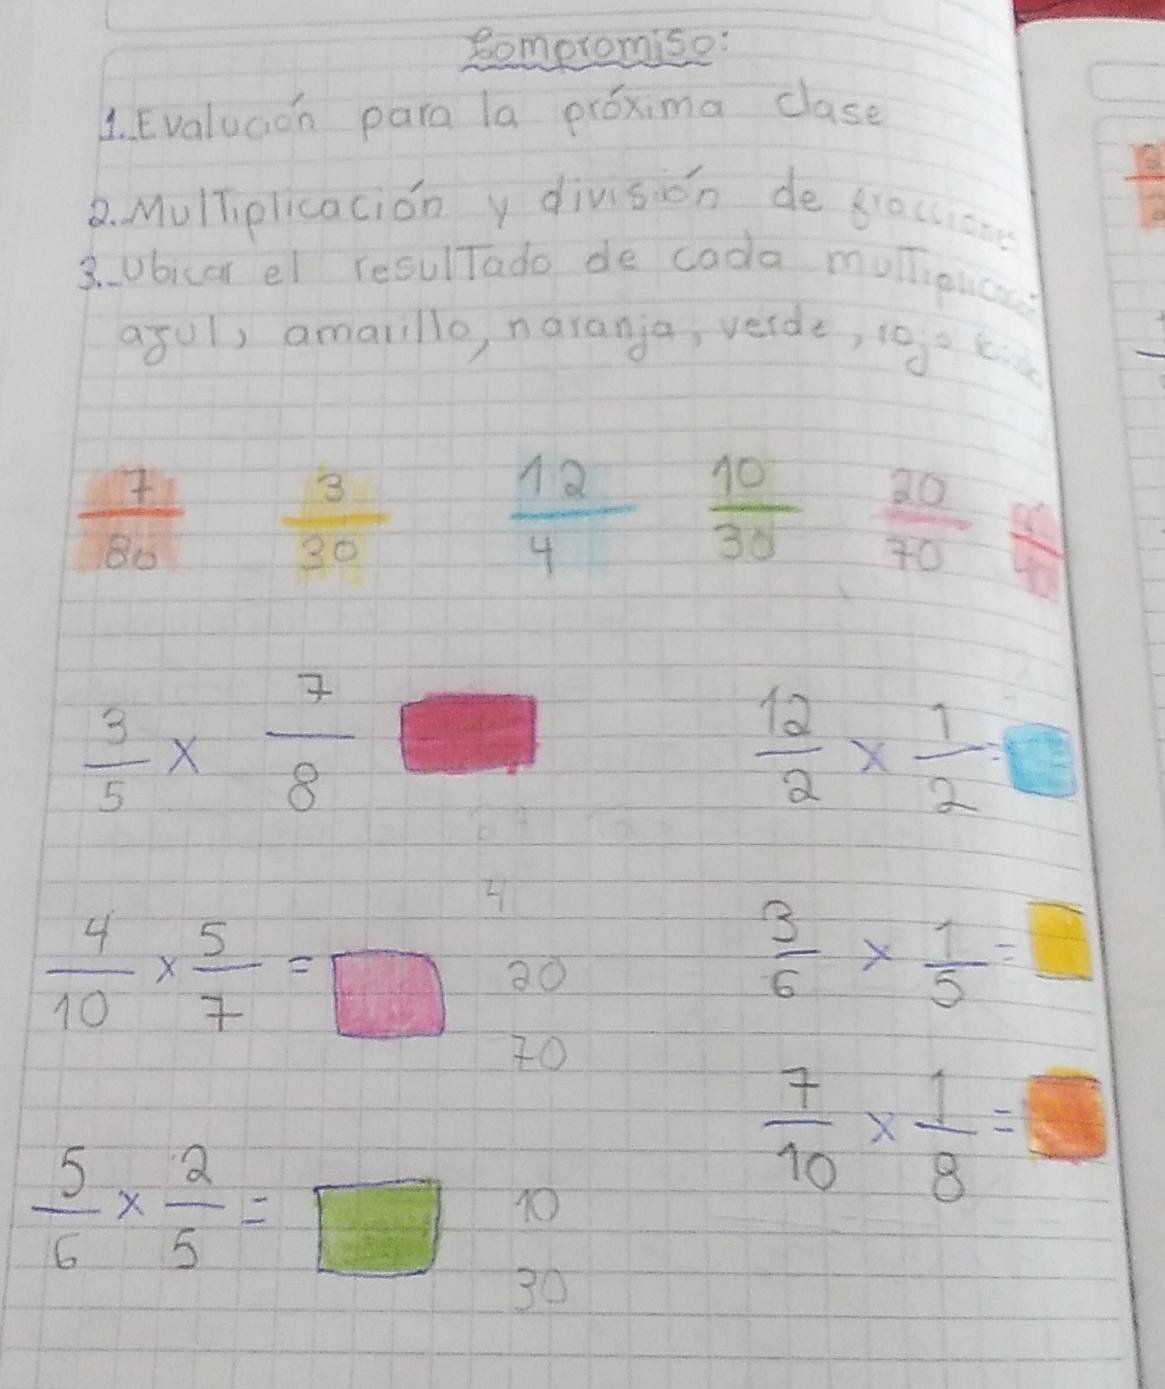 Compromiso:
1. Evalución para la próxima clase
2. Multiplicación y división de fracciones
3. Ubicar el resultado de cada multiplicación
azul, amarillo, naranja, verde, rojo
7 3 12 10 20
80 30 4 30 70
3/5 × 7/8
12/2 × 1/2 =
4
4/10 × 5/7 = 20
70
3/6 × 1/5 =
7/10 × 1/8 =
5/6 × 2/5 = 10
30